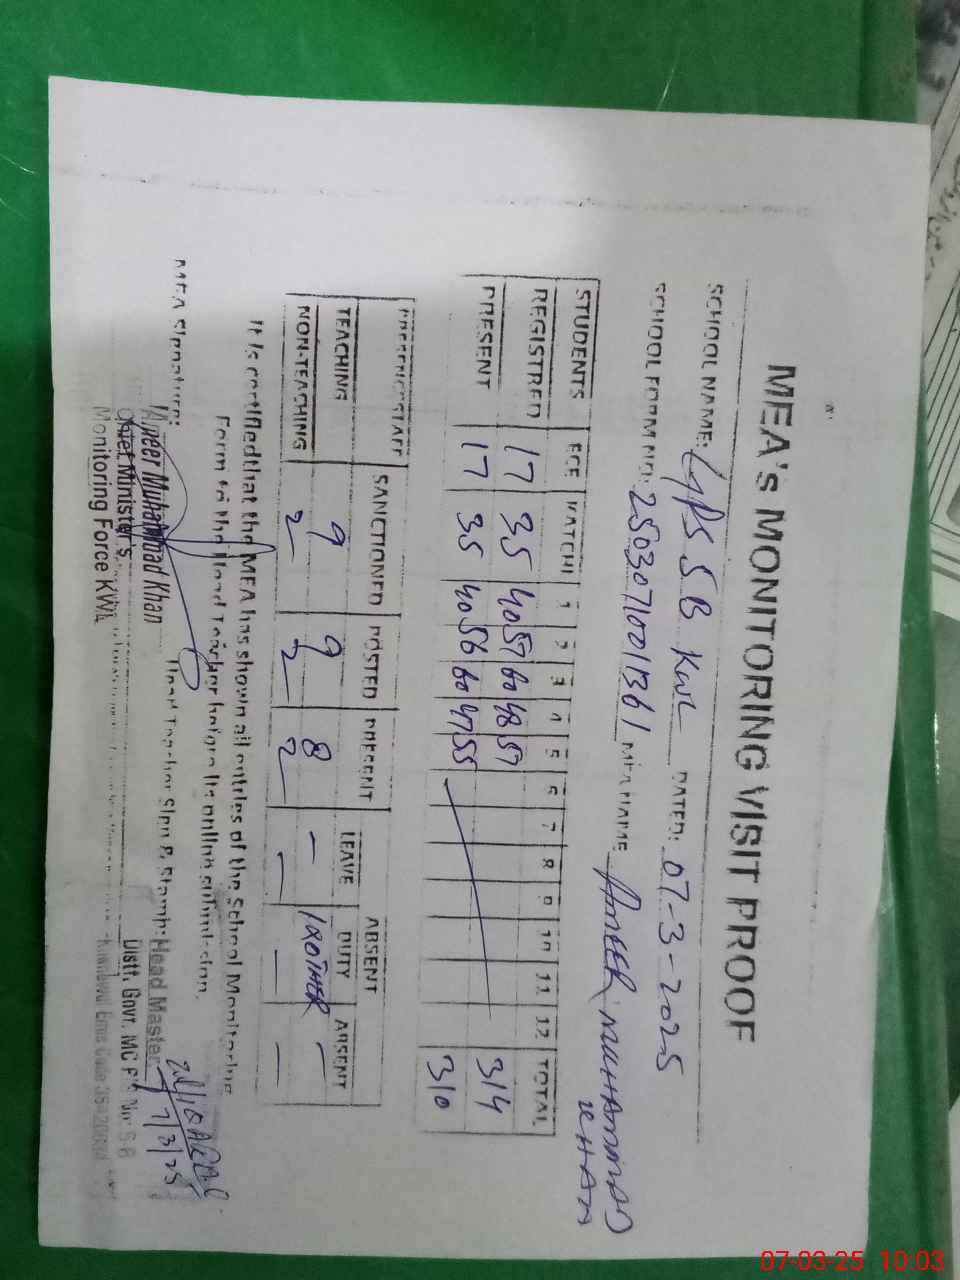 MEA's MONITORING VISIT PROOF
SCHOOL NAME: GPS 5B KWL DATED: 07-3-2025
SCHOOL FORM NO: 2503071001361 MEA NAME AMEER MUHAMMAD KHAN
STUDENTS ECE KATCHI 1 2 3 4 5 6 7 8 9 10 11 12 TOTAL
REGISTRED 17 35 40 57 60 48 57 314
PRESENT 17 35 40 56 60 47 55 310
PRESENCSTAFF SANCTIONED POSTED PRESENT ABSENT
LEAVE DUTY ABSENT
TEACHING 9 9 8 - 1 × OTHER -
NON-TEACHING 2 2 2 - - -
It is certified that the MEA has shown all entries of the School Monitoring
Form to the Head Teacher before its online submission.
MEA Signature: Head Teacher Sign & Stamp: Head Master
Ameer Muhammad Khan
Chief Minister's
Monitoring Force KWL
Distt. Govt. MC P/S No: 5-B
7/3/25
07-03-25 10:03